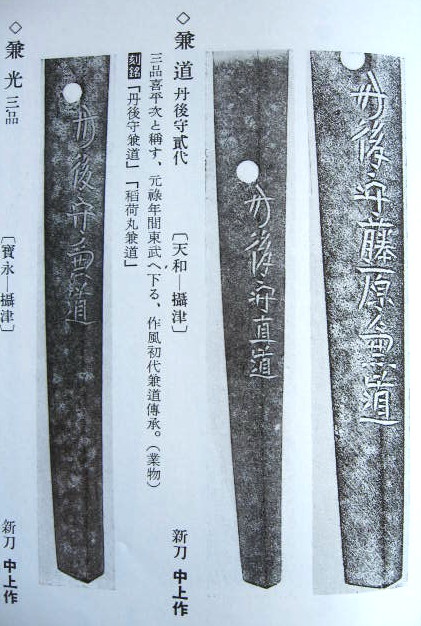 丹後守藤原兼道
丹後守直道
◇兼道 丹後守貳代 〔天和―攝津〕 新刀 中上作
三品喜平次と稱す、元祿年間東武へ下る、作風初代兼道傳承。(業物)
刻銘「丹後守兼道」「稻荷丸兼道」
丹後守兼道
◇兼光 三品 〔寶永―攝津〕 新刀 中上作